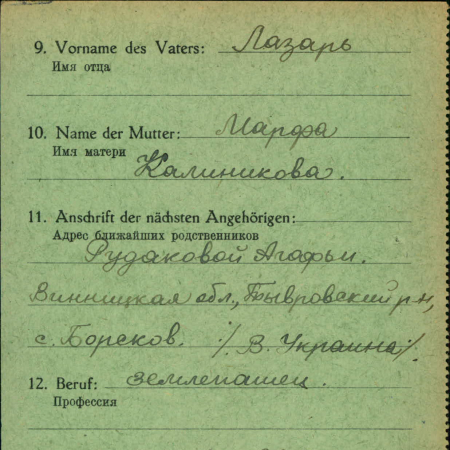 9. Vorname des Vaters: Лазарь
Имя отца
10. Name der Mutter: Марфа
Имя матери
Калиникова.
11. Anschrift der nächsten Angehörigen:
Адрес ближайших родственников
Рудаковой Агафьи.
Винницкая обл., Тывровский р-н,
с. Борсков. /. В. Украина/.
12. Beruf: землепашец.
Профессия